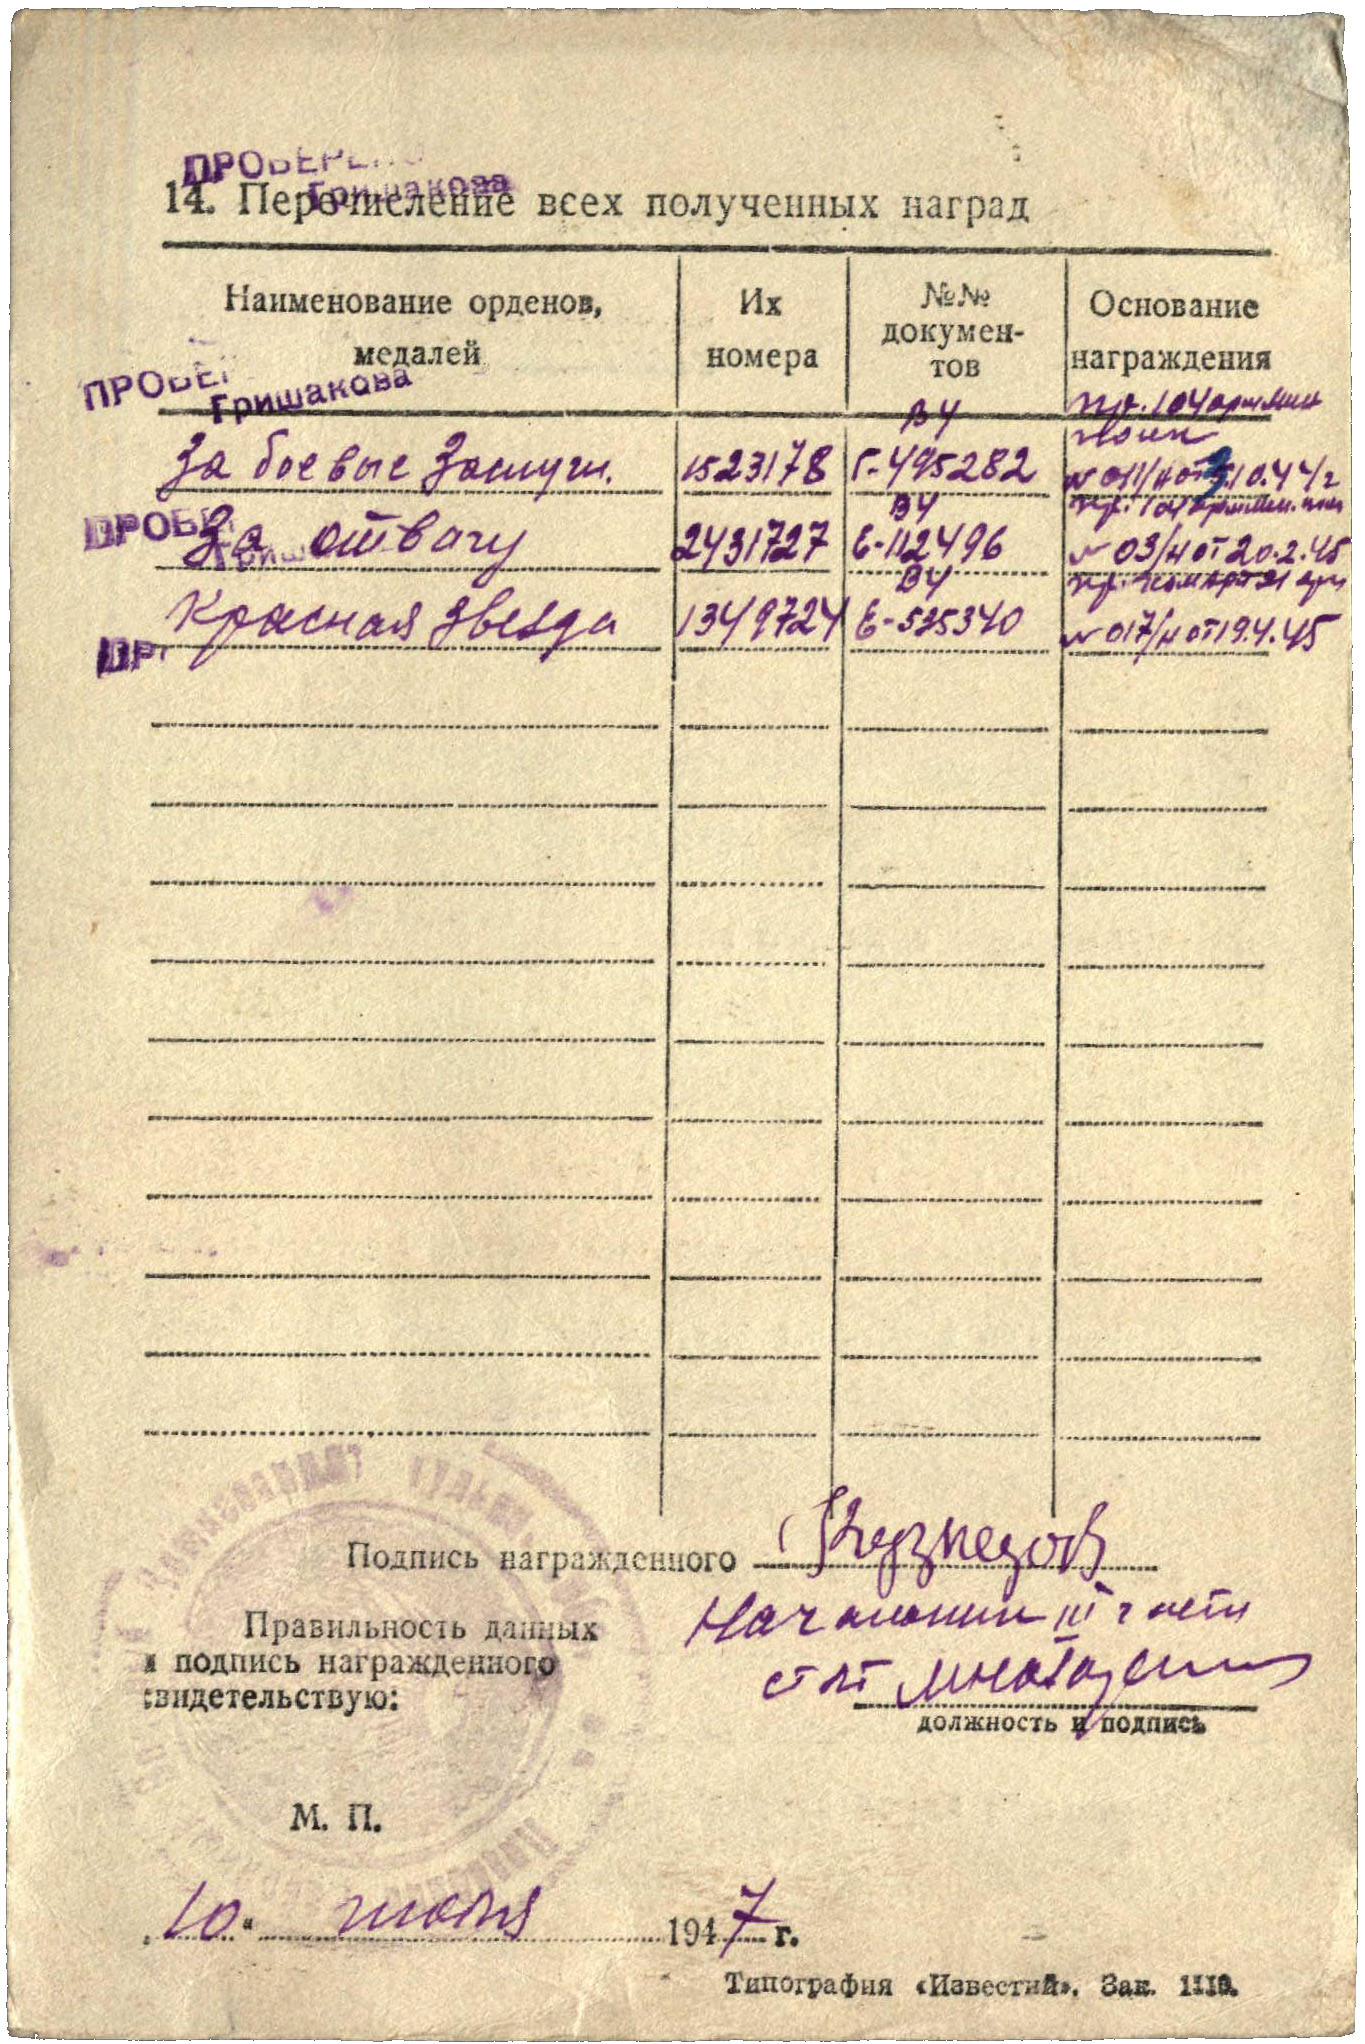 ПРОВЕРЕНО
Гришакова
14. Перечисление всех полученных наград
Наименование орденов, медалей
Их номера
№№ документов
Основание награждения
ПРОВЕР
Гришакова
За боевые заслуги. 1523178 ВУ Г-495282 №011/н от 3.10.44г
ПРОВЕ
За отвагу 2431727 ВУ Е-112496 №03/н от 20.2.45
Красная звезда 1349724 ВУ Е-525340 №017/н от 19.4.45
Подпись награжденного Кузнецов
Правильность данных
и подпись награжденного
свидетельствую:
Начальник III части
ст лт
должность и подпись
М. П.
10. июля 1947 г.
Типография «Известий». Зак. 1110.